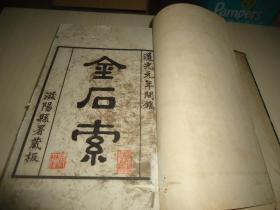 道光元年開鐫
金石索
滋陽縣署藏板
Pampers